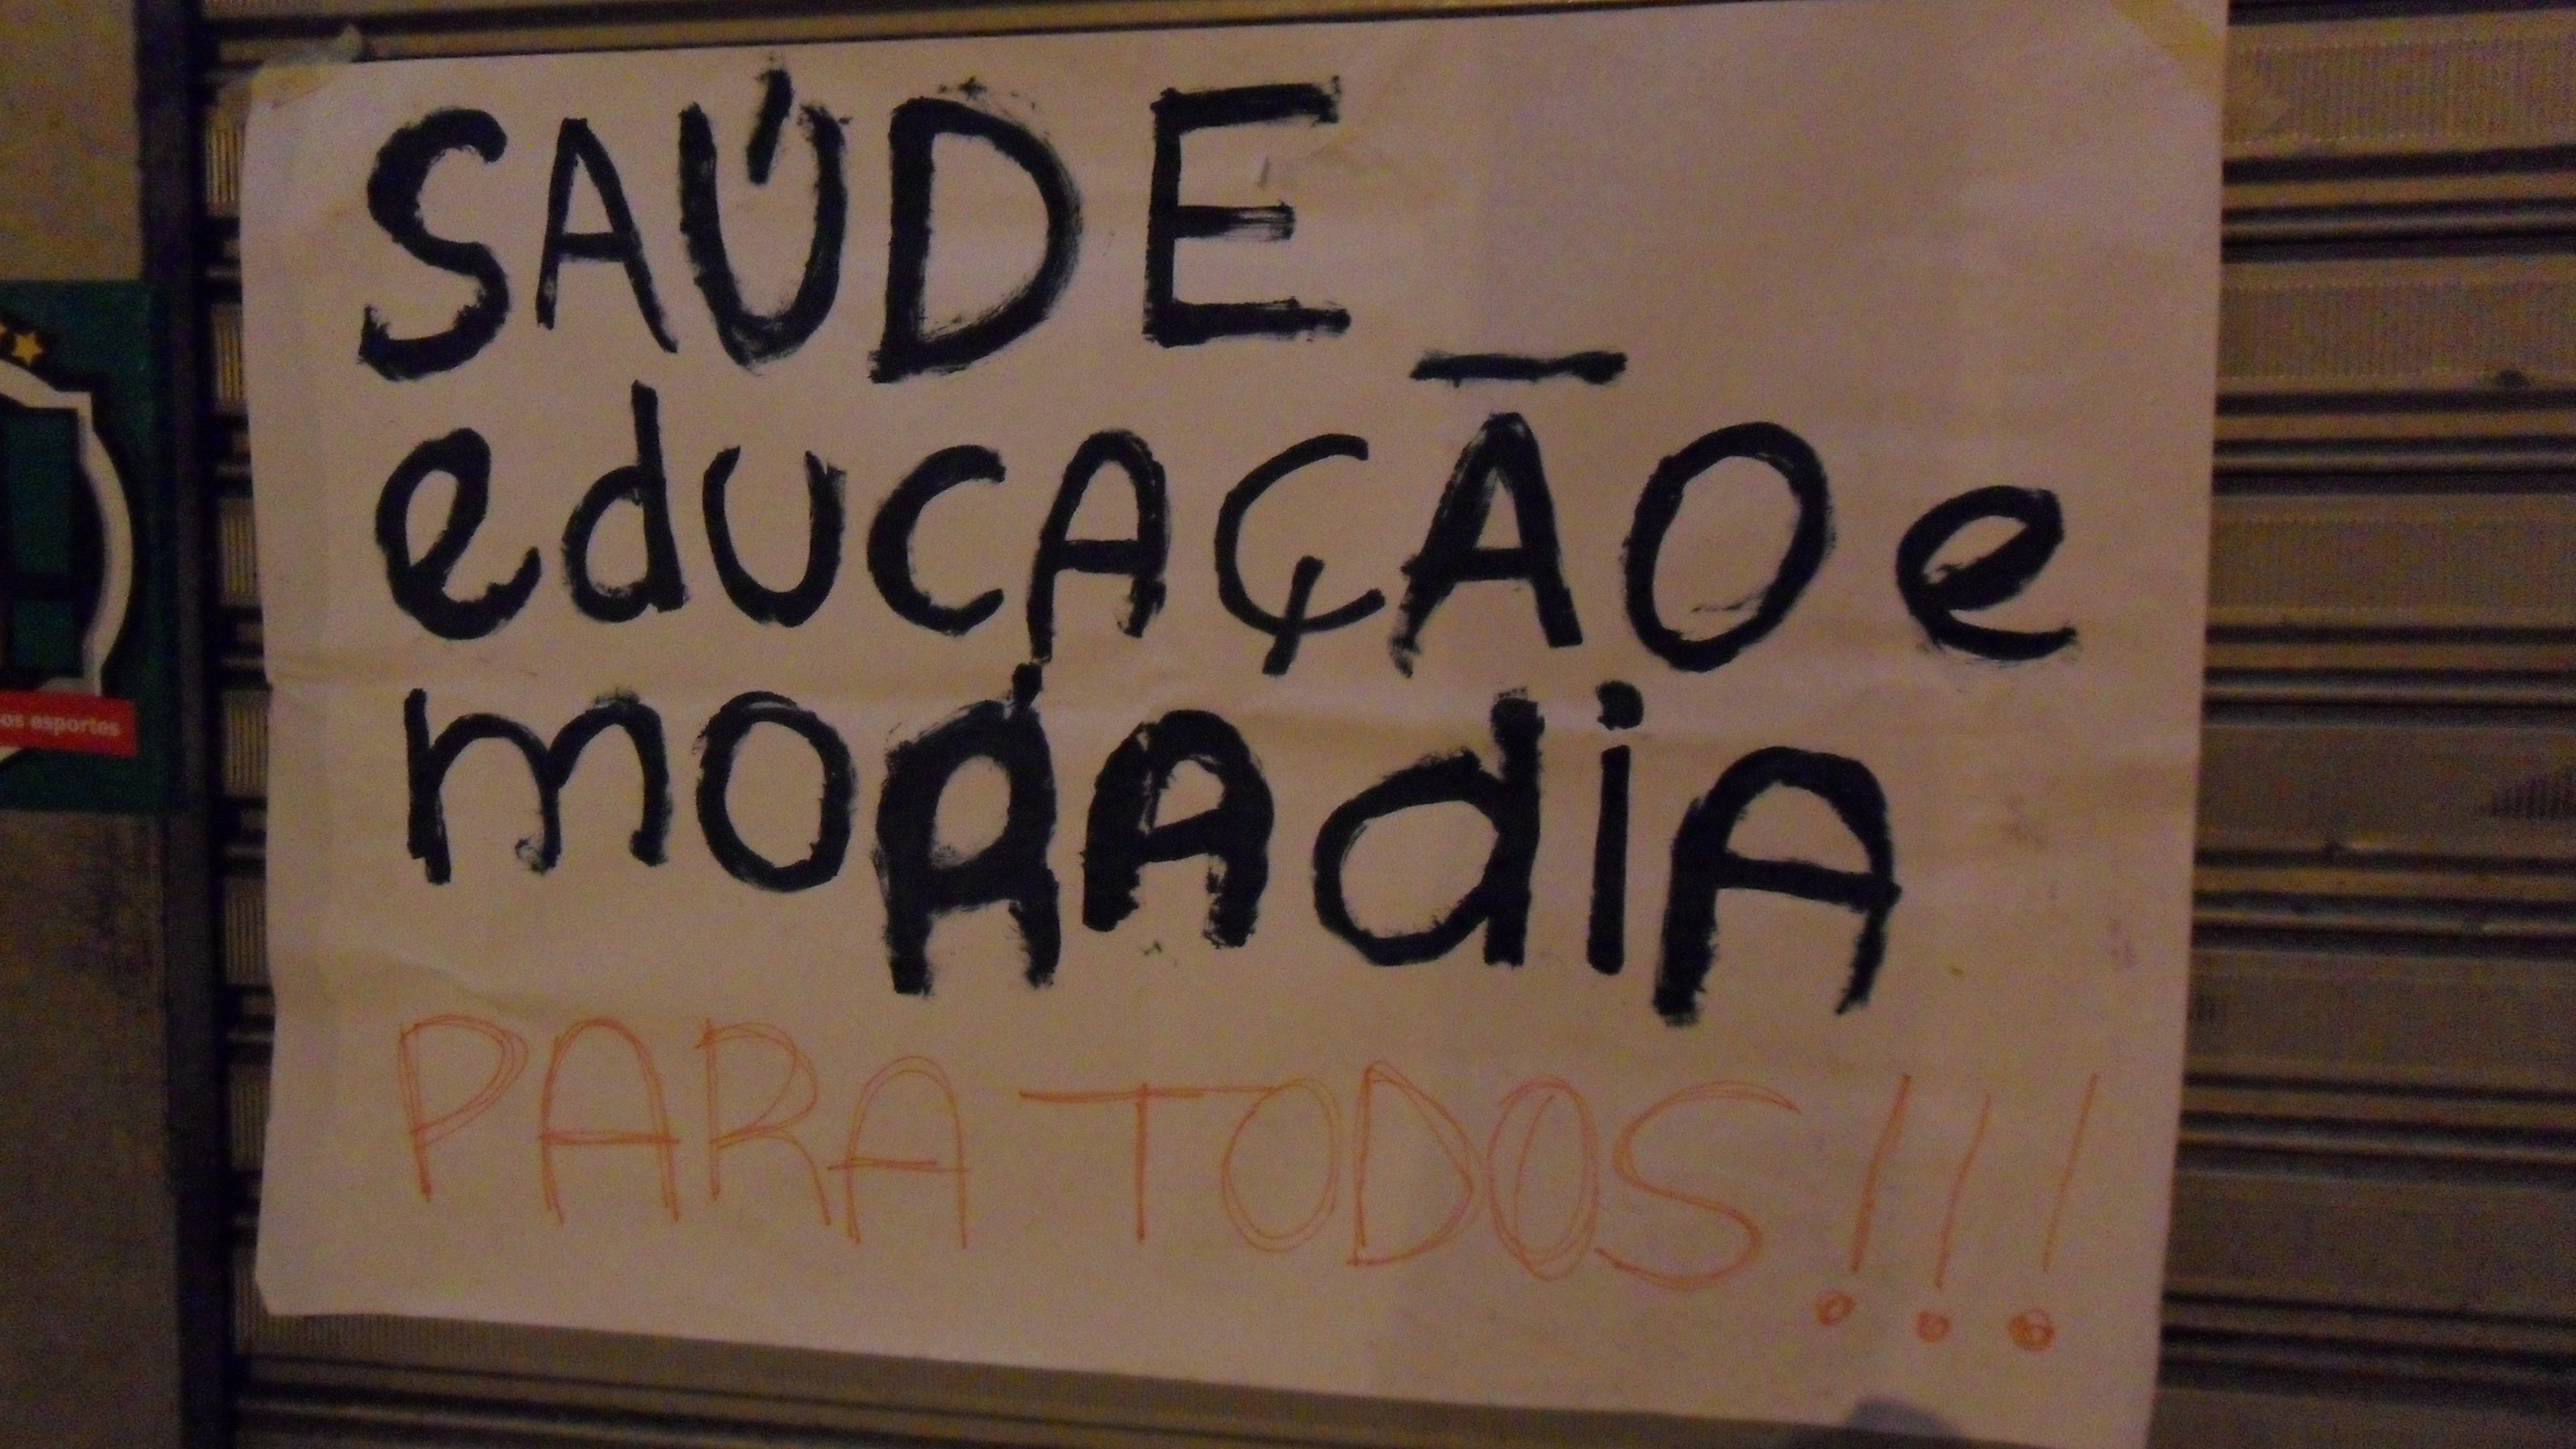 SAÚDE
eduCAÇÃO e
moRAdiA
PARA TODOS!!!
os esportes